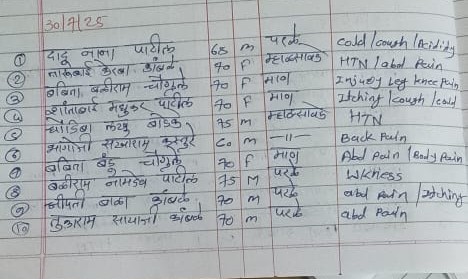 30/7/25
① दादू नाना पाटील 65 m परळे cold/cough/Acidity
② ताराबाई केरबा कांबळे 70 F म्हाळसवडे HTN/abd Pain
③ बबिता बळीराम चौगुले 70 F माण Injury Leg knee Pain
④ शांताबाई मधुकर पाटील 70 F माण Itching/cough/cold
⑤ धोंडिबा लक्ष्मण बोडके 75 m म्हाळसवडे HTN
⑥ सखाराम 60 m —॥— Back Pain
⑦ बबिता बंडू चौगुले 70 F माण Abd Pain/Body Pain
⑧ बळीराम नामदेव पाटील 75 M परळे Wicness
⑨ श्रीपती बाळा कांबळे 70 m परळे abd Pain/Itching
⑩ तुकाराम सावाजी कांबळे 70 m परळे abd Pain